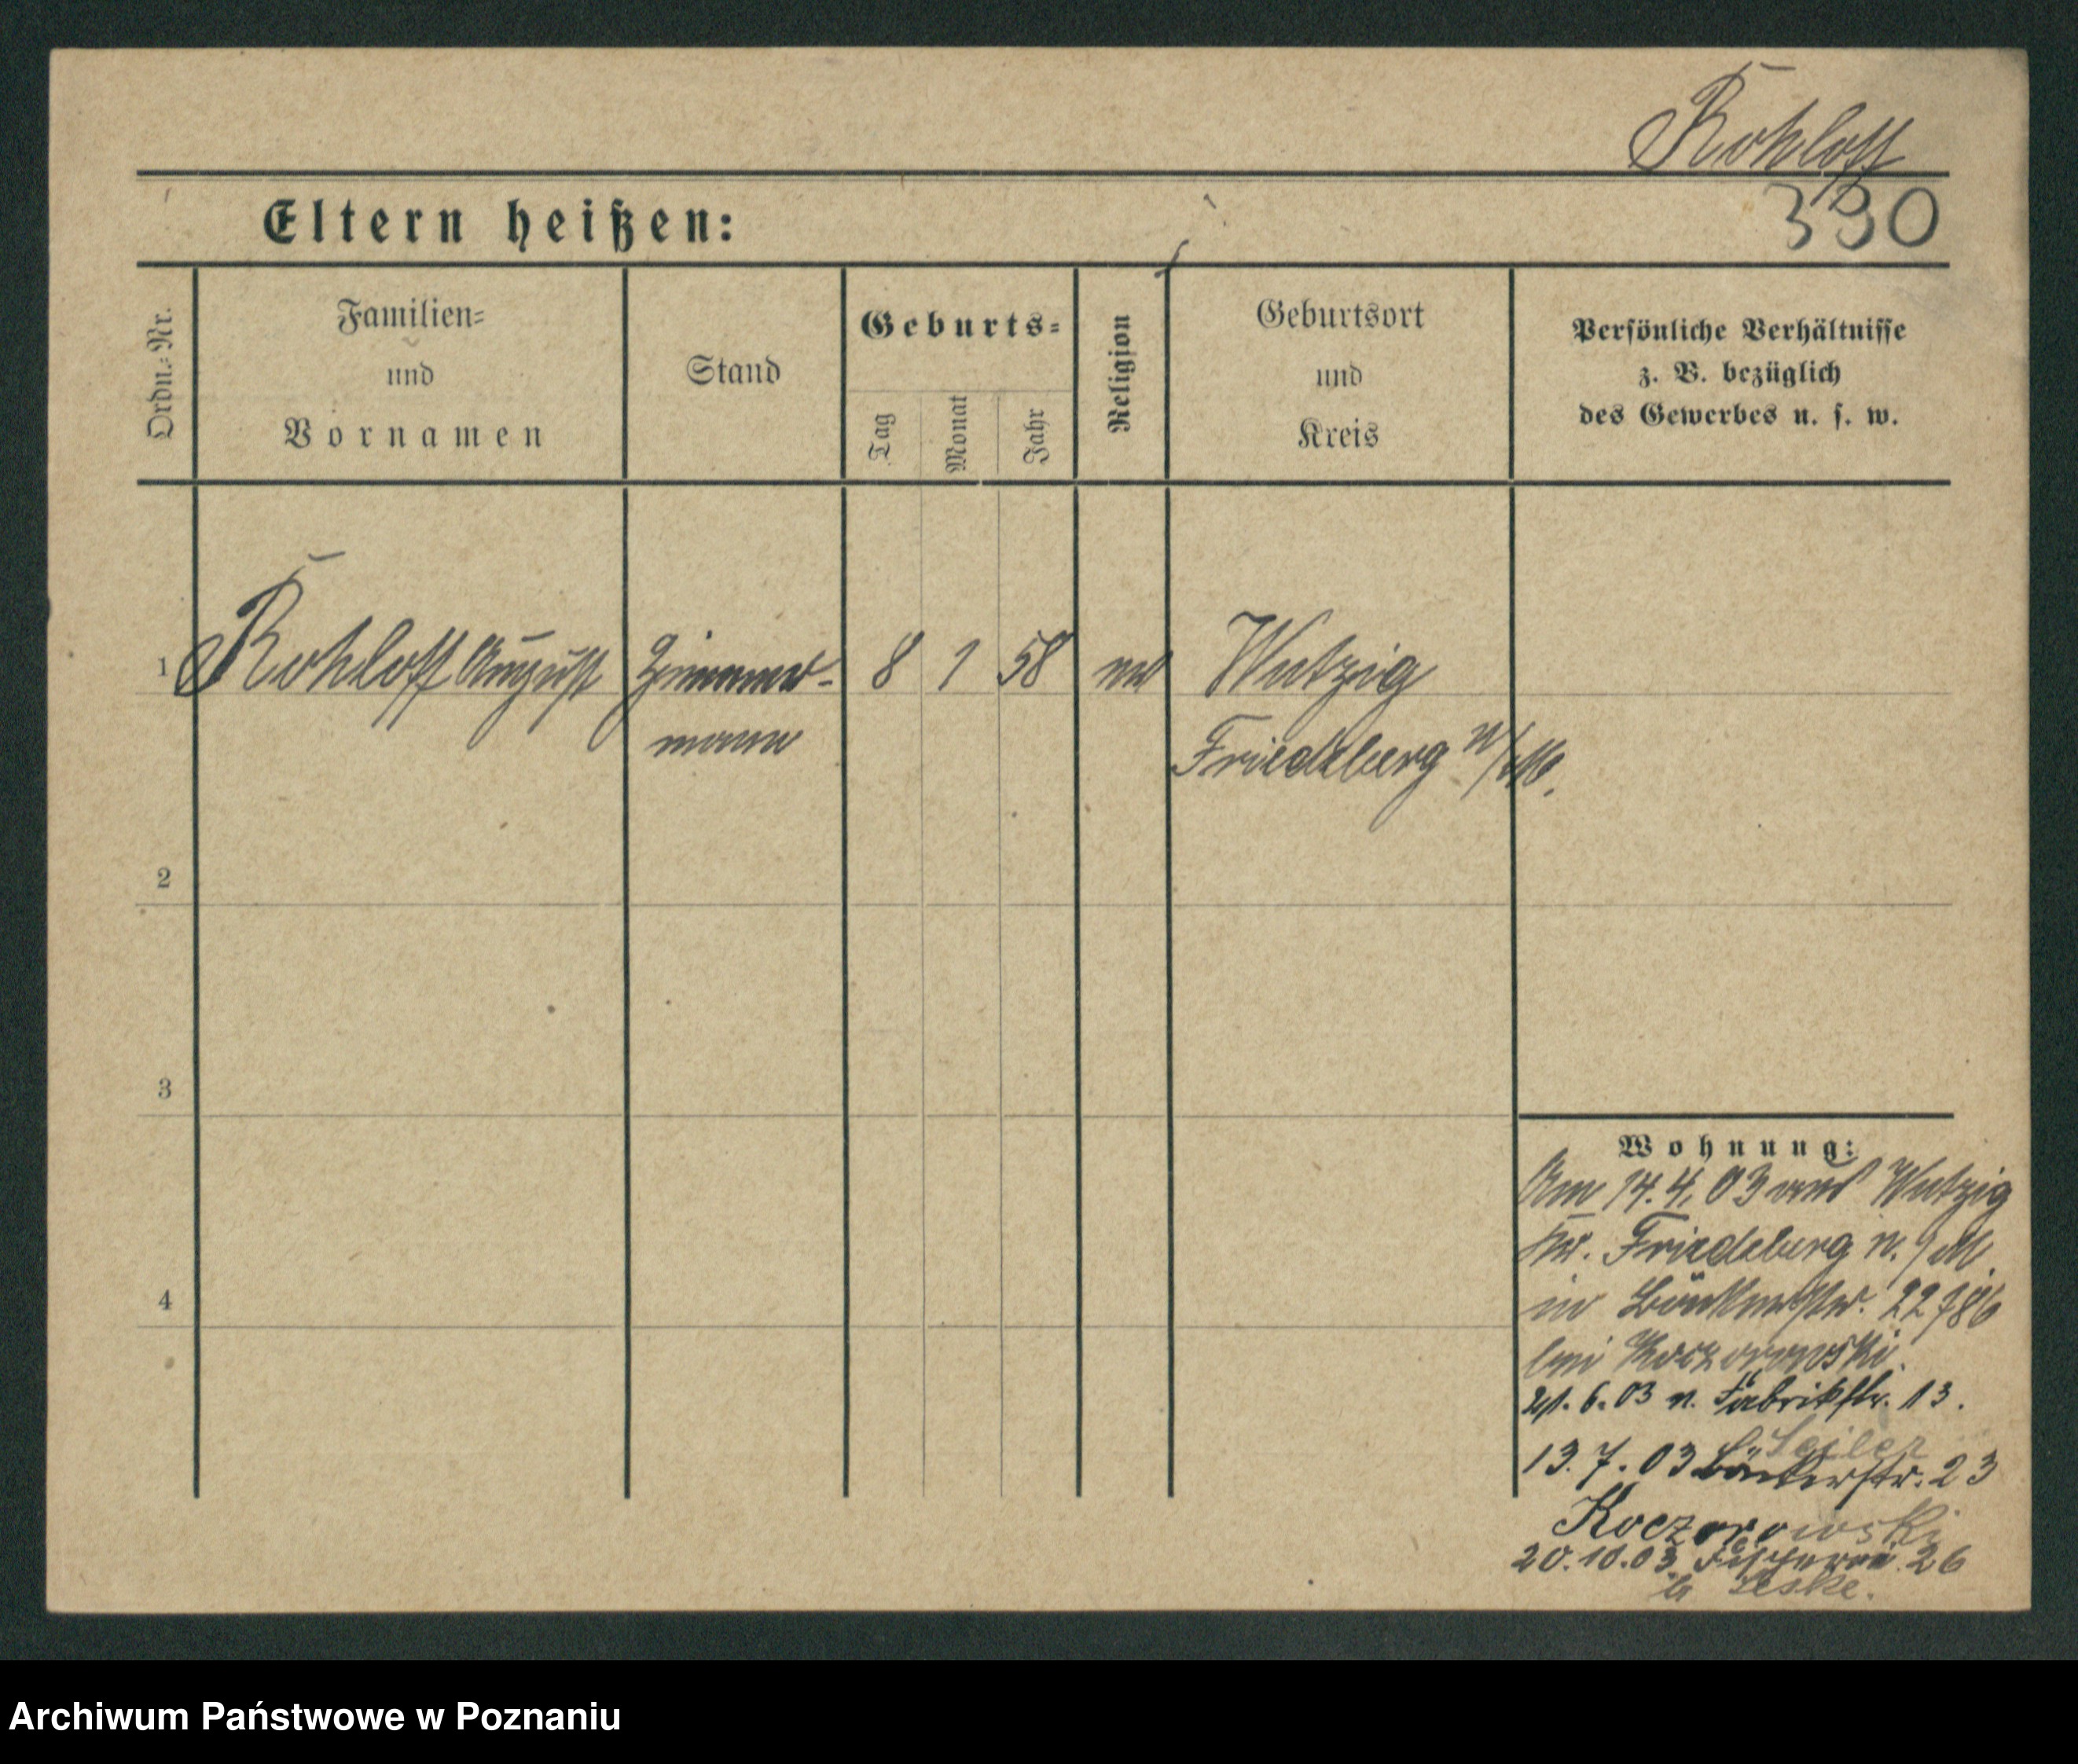 Rohloff
Eltern heißen:
330
Ordn.-Nr.
Familien-
und
Vornamen
Stand
Geburts-
Tag
Monat
Jahr
Religion
Geburtsort
und
Kreis
Persönliche Verhältnisse
z. B. bezüglich
des Gewerbes u. s. w.
1 Rohloff August Zimmer- 8 1 58 Wutzig
mann Friedeberg N/M.
2
3
4
Wohnung:
Am 14.4.03 aus Wutzig
Kr. Friedeberg N./M.
in Bäckerstr. 22
bei Koczorowski.
21.6.03 n. Fabrikstr. 13.
Seiler
13.7.03 Bäckerstr. 23
Koczorowski
20.10.03 Fischerei 26
b Leske.
Archiwum Państwowe w Poznaniu